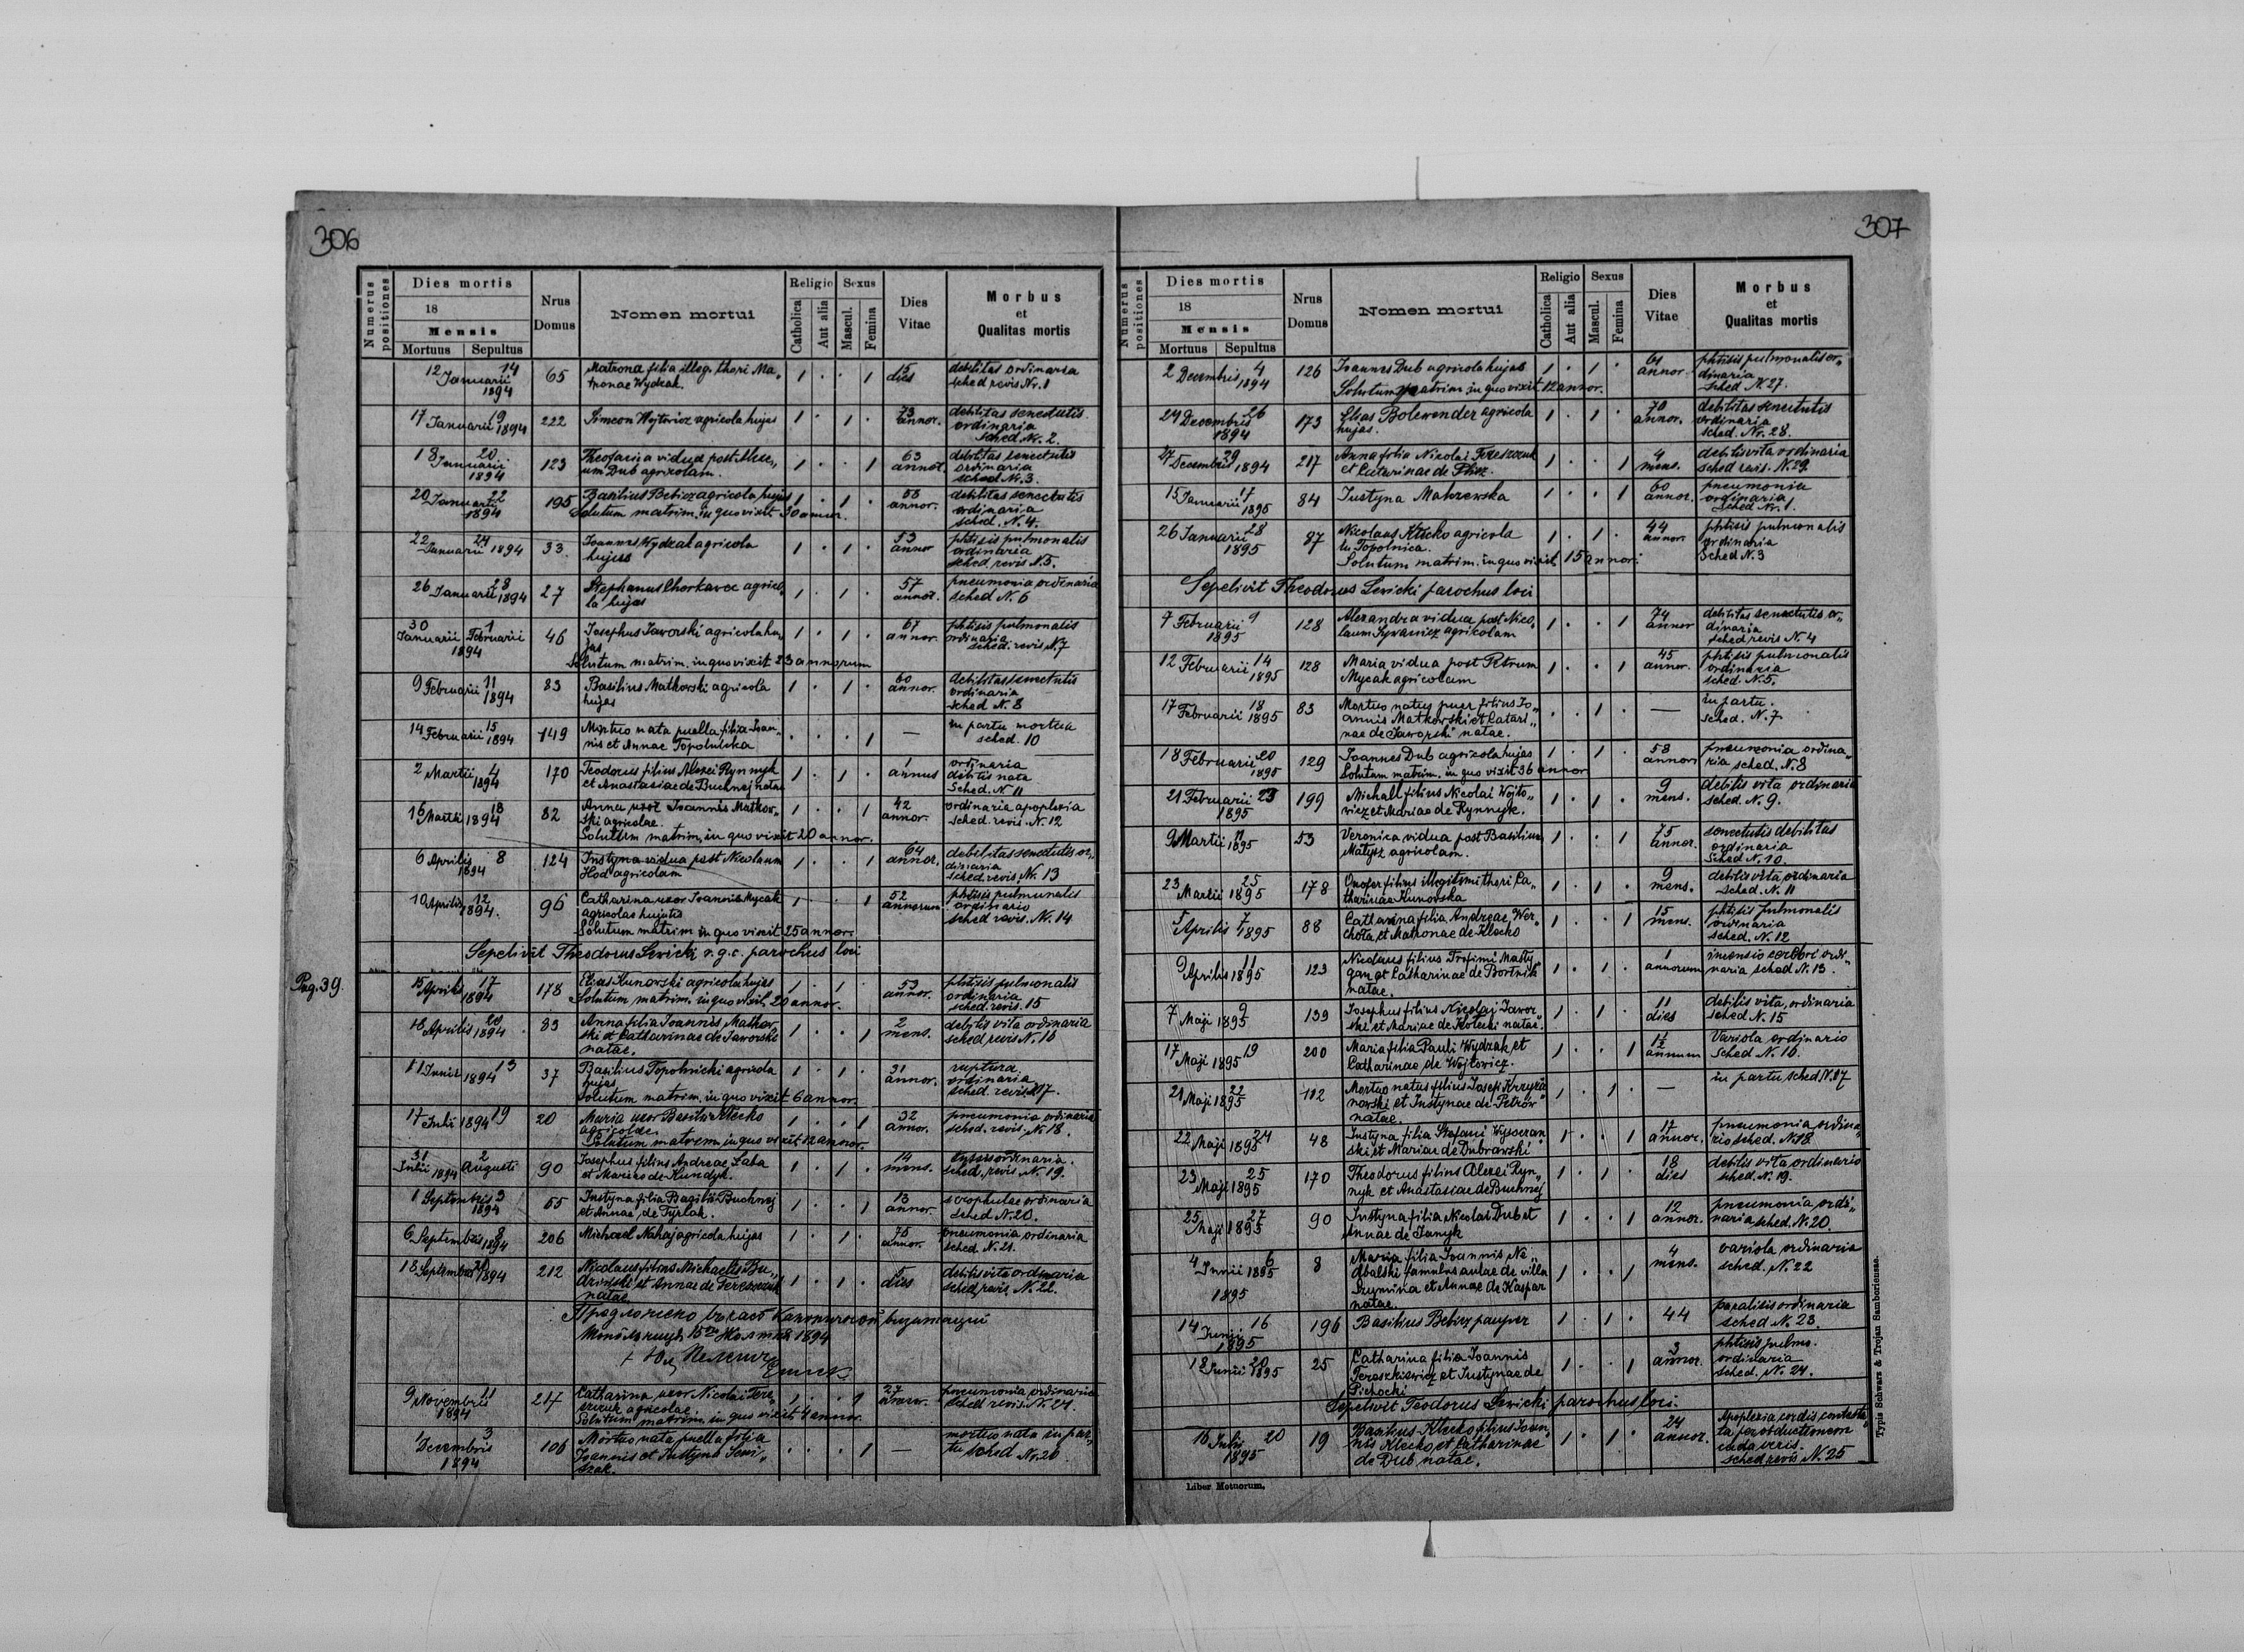 306
Numerus positiones
Dies mortis
18
Mensis
Mortuus Sepultus
Nrus Domus
Nomen mortui
Religio
Catholica
Aut alia
Sexus
Mascul.
Femina
Dies Vitae
Morbus et Qualitas mortis
12 14 Januarii 1894 65 Matrona filia illeg. thori Ma„ 1 . . 1 15 dies debilitas ordinaria
tronae Wydzak. sched revis Nr. 1
17 19 Januarii 1894 222 Simeon Wojtowicz agricola hujas 1 . 1 . 73 annor. debilitas senectutis
ordinaria
sched. Nr. 2.
18 20 Januarii 1894 123 vidua post 1 . . 1 63 annor. debilitas senectutis
um Dub agricolam. ordinaria
sched N. 3.
20 22 Januarii 1894 195 Basilius Bebicz agricola hujas 1 . 1 . annor. debilitas senectutis
Solutum matrim. in quo vixit 30 annor. ordinaria
sched. N. 4.
22 24 Januarii 1894 33 Joannes Wydzak agricola 1 . 1 . 53 annor phtisis pulmonalis
hujas ordinaria
sched revis N. 5.
26 28 Januarii 1894 27 Stephanus Chorkavec agrico„ 1 . 1 . 57 annor. pneumonia ordinaria
la hujas sched N. 6
30 Januarii 1 Februarii 1894 46 Josephus Jaworski agricola hu„ 1 . 1 . 67 annor. phtisis pulmonalis
jas ordinaria
sched. revis N. 7
Solutum matrim. in quo vixit 23 annorum
9 11 Februarii 1894 83 Basilius Matkowski agricola 1 . 1 . 60 annor. debilitas senectutis
hujas ordinaria
sched N. 8
14 15 Februarii 1894 149 Mortuo nata puella filia Joan„ . . . 1 — in partu mortua
nis et Annae Topolnicka sched. 10
2 4 Martii 1894 170 Teodorus filius Alexei Rynnyk 1 . 1 . 1 annus ordinaria
et Anastasiae de Buchnej natae debilis nata
Sched. N 11
16 18 Martii 1894 82 Anna uxor Joannis Matkow„ 1 . . 1 42 annor. ordinaria apoplexia
ski agricolae. sched. revis. N. 12
Solutum matrim, in quo vixit 20 annor.
6 8 Aprilis 1894 124 Justyna vidua post Nicolaum 1 . . 1 64 annor. debilitas senectutis or„
Hod agricolam dinaria
sched. revis. N. 13
10 12 Aprilis 1894. 96 Catharina uxor Joannis Mycak 1 . . 1 52 annorum phtisis pulmonalis
agricolae hujatis ordinario
Solutum matrim in quo vixit 25 annor. sched revis. N. 14
Sepelivit Theodorus Lewicki r. g. c. parochus loci
Pag. 39.
15 17 Aprilis 1894 178 Elias Kunowski agricola hujas 1 . 1 . 53 annor. phtisis pulmonalis
Solutum matrim. in quo vixit 20 annor. ordinaria
sched. revis. 15
18 20 Aprilis 1894 83 Anna filia Joannis Matkow 1 . . 1 2 mens. debilis vita ordinaria
ski et Catharinae de Jaworski sched revis N. 16
natae.
11 13 Junii 1894 37 Basilius Topolnicki agricola 1 . 1 . 31 annor. ruptura
hujas ordinaria
Solutum matrim. in quo vixit 6 annor. sched. revis. N 17.
17 19 Julii 1894 20 Maria uxor Basilii Klecko 1 . . 1 32 annor. pneumonia ordinaria
agricolae. sched. revis. N. 18.
Solutum matrem. in quo vixit 12 annor.
31 Julii 1894 2 Augusti 90 Josephus filius Andreae Laba 1 . 1 . 14 mens. tussis ordinaria.
et Mariae de Kundyk. sched, revis, N. 19.
1 3 Septembris 1894 65 Justyna filia Basilii Buchnej 1 . . 1 13 annor. scrophulae ordinaria
et Annae de Tyrlak. sched N. 20.
6 8 Septembris 1894 206 Michael Nahaj agricola hujas 1 . 1 . 75 annor. pneumonia ordinaria
sched. N. 21.
18 20 Septembris 1894 212 Nicolaus filius Michaelis Bu„ 1 . 1 . 5 dies debilis vita ordinaria
drinski et Annae de Tereszczuk sched, revis, N. 22.
natae
1894
9 11 Novembris 1894 217 Catharina uxor Nicolai Tere„ 1 . . 1 27 annor. pneumonia ordinaria
szczuk agricolae. sched revis. N. 24.
Solutum matrim. in quo vixit 4 annor.
1 3 Decembris 1894 106 Mortuo nata puella filia . . . 1 — mortuo nata in par„
Joannis et Justyna Seni„ tu sched Nr. 26
szak.
307
Numerus positiones
Dies mortis
18
Mensis
Mortuus Sepultus
Nrus Domus
Nomen mortui
Religio
Catholica
Aut alia
Sexus
Mascul.
Femina
Dies Vitae
Morbus et Qualitas mortis
2 4 Decembris 1894 126 Joannes Dub agricola hujas 1 . 1 . 61 annor. phtisis pulmonalis or„
dinaria
Solutum matrim. in quo vixit 12 annor. sched N. 27.
24 26 Decembris 1894 173 Elias Bolewender agricola 1 . 1 . 70 annor. debilitas senectutis
hujas. ordinaria
sched. Nr. 28.
27 29 Decembris 1894 217 Anna filia Nicolai Tereszczuk 1 . . 1 4 mens. debilis vita ordinaria
et Catarinae de sched revis. N. 29.
15 17 Januarii 1895 84 Justyna Mahrewska 1 . . 1 60 annor. pneumonia
ordinaria
sched Nr. 1.
26 28 Januarii 1895 87 Nicolaus Klecko agricola 1 . 1 . 44 annor. phtisis pulmonalis
in Topolnica. ordinaria
Solutum matrim. in quo vixit 15 annor. Sched N. 3
Sepelivit Theodorus Lewicki parochus loci
7 9 Februarii 1895 128 Alexandra vidua post Nico„ 1 . . 1 74 annor debilitas senectutis or„
laum agricolam dinaria
sched revis N. 4
12 14 Februarii 1895 128 Maria vidua post Petrum 1 . . 1 45 annor. phtisis pulmonalis
Mycak agricolam ordinaria
sched. N. 5.
17 18 Februarii 1895 83 Mortuo natus puer filius Jo„ . . 1 . — in partu.
annis Matkowski et Catari„ sched. N. 7
nae de Jaworski natae.
18 20 Februarii 1895 129 Joannes Dub agricola hujas 1 . 1 . 58 annor pneumonia ordina„
Solutum matrim. in quo vixit 36 annor ria sched. N. 8
21 23 Februarii 1895 199 Michall filius Nicolai Wojto„ 1 . 1 . 9 mens. debilis vita ordinaria
wicz et Mariae de Rynnyk. sched. N. 9.
9 11 Martii 1895 53 Veronica vidua post Basilium 1 . . 1 75 annor. senectutis debilitas
Matysz agricolam. ordinaria
Sched N. 10.
23 25 Martii 1895 178 Onofer filius illegitimi thori Ca„ 1 . 1 . 9 mens. debilis vita ordinaria
tharinae Kunowska sched. N. 11
5 7 Aprilis 1895 88 Catharina filia Andreae Wer„ 1 . . 1 15 mens. phtisis pulmonalis
chola, et Matronae de Klecko ordinaria
sched. N. 12
9 11 Aprilis 1895 123 Nicolaus filius Trofimi Matty„ 1 . 1 . 1 annorum cerebri ordi„
gan et Catharinae de Bortnik naria sched N. 13.
natae.
7 9 Maji 1895 139 Josephus filius Nicolaj Jawor„ 1 . 1 . 11 dies debilis vita, ordinaria
ski et Mariae de Kolecki natae. sched N. 15
17 19 Maji 1895 200 Maria filia Pauli Wydzak et 1 . . 1 1½ annum Variola ordinario
Catharinae de Wojtowicz. Sched N. 16.
21 22 Maji 1895 112 Mortuo natus filius Josefi Krzyża 1 . 1 . — in partu sched N. 17
nowski et Justynae de Petrów
natae
22 24 Maji 1895 48 Justyna filia Stefani Wysoczan„ 1 . . 1 17 annor. pneumonia ordina„
ski et Mariae de Dubrawski rio sched. N. 18.
23 25 Maji 1895 170 Theodorus filius Alexei Ryn„ 1 . 1 . 18 dies debilis vita ordinario
nyk et Anastasiae de Buchnej sched. N. 19.
25 27 Maji 1895 90 Justyna filia Nicolai Dub et 1 . . 1 12 annor. pneumonia ordi„
Annae de Janyk naria, sched. N. 20.
4 6 Junii 1895 8 Maria filia Joannis Ne„ 1 . . 1 4 mens. variola ordinaria
dbalski famulus aulae de villa sched. N. 22
1895 et Annae de Kaspar
natae.
14 16 Junii 1895 196 Basilius Bebicz pauper 1 . 1 . 44 paralisis ordinaria
sched N. 23.
18 20 Junii 1895 25 Catharina filia Joannis 1 . . 1 3 annor. phtisis pulmo.
Teraszkiewicz et Justynae de ordinaria
Pichocki sched. N. 24.
Sepelivit Teodorus Lewicki parochus loci.
16 20 Julii 1895 19 Basilius Klecko filius Joan„ 1 . 1 . 24 annor. Apoplexia cordis contesta„
nis Klecko et Catharinae ta per obductionem
de Dub natae. cadaveris.
sched, revis N. 25
Liber Motuorum.
Typis Schwarz & Trojan Samboriensae.